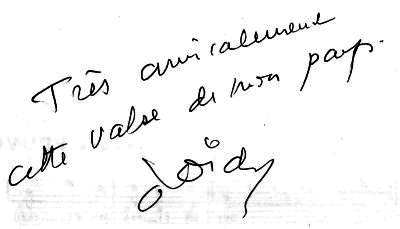 Très amicalement
cette valse de mon pays.